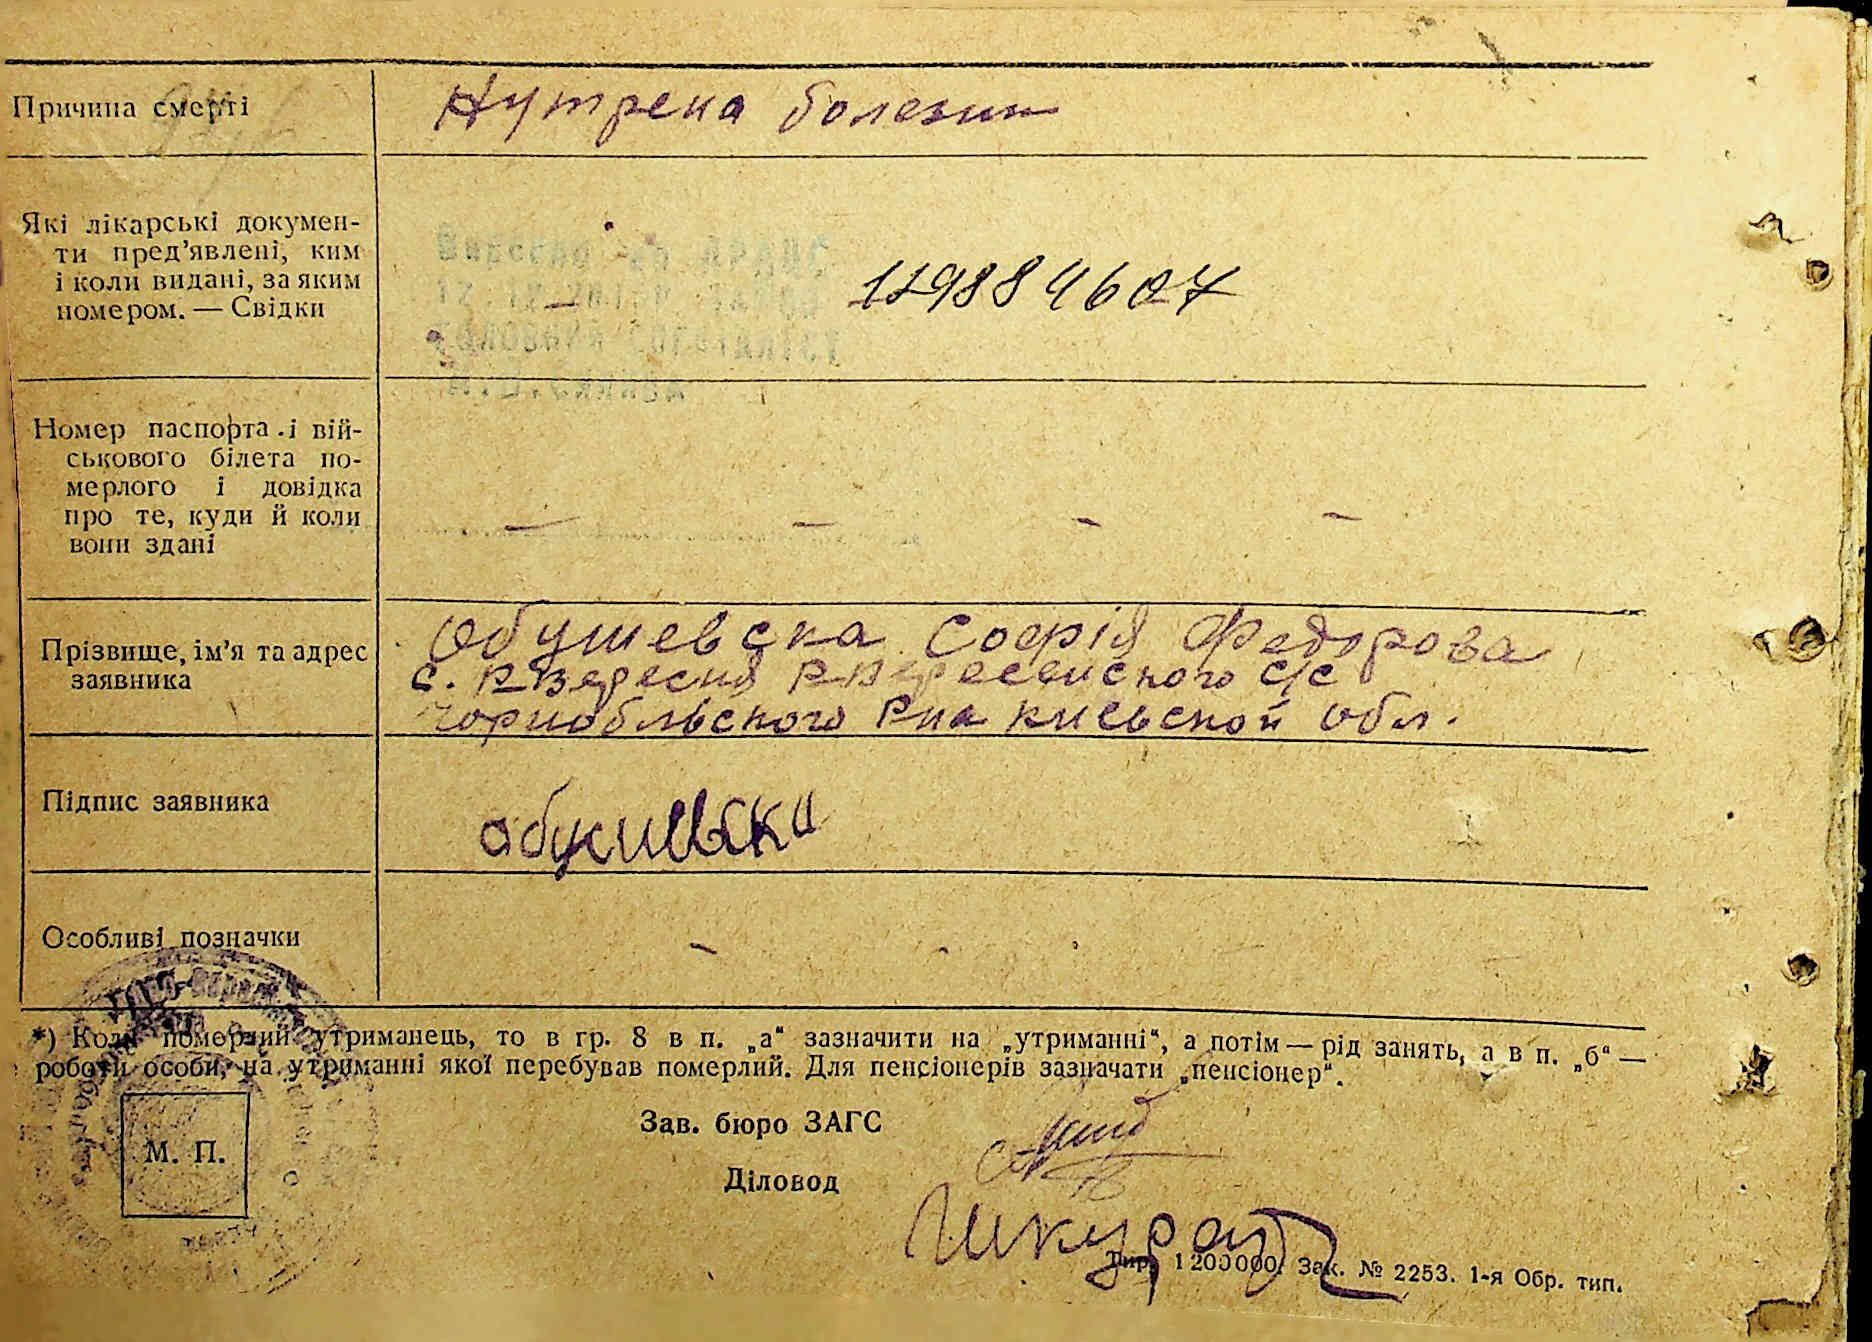 Причина смерті
Нутрена болезни
Які лікарські докумен-
ти пред’явлені, ким
і коли видані, за яким
номером. — Свідки
Внесено до АРАЦС
119884607
Номер паспорта і вій-
ськового білета по-
мерлого і довідка
про те, куди й коли
вони здані
— — — —
Прізвище, ім’я та адрес
заявника
Обушевска Софія Федорова
с. Р Вересня Р Вересенского с/с
Чорнобльського Рна Києвской обл.
Підпис заявника
Особливі позначки
*) Коли померлий утриманець, то в гр. 8 в п. „а“ зазначити на „утриманні“, а потім — рід занять, а в п. „б“ —
роботи особи, на утриманні якої перебував померлий. Для пенсіонерів зазначати „пенсіонер“.
М. П.
Зав. бюро ЗАГС
Діловод
Шкурат
Тир. 1200000. Зак. № 2253. 1-я Обр. тип.